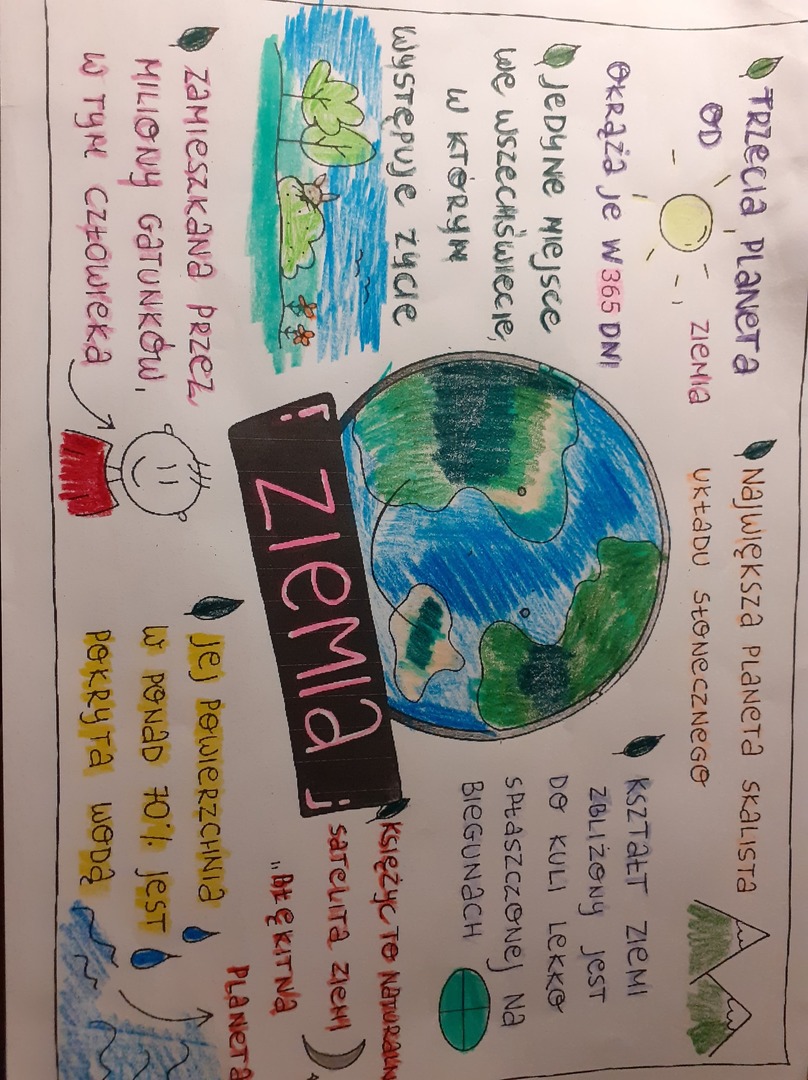 TRZECIA PLANETA
OD
ZIEMIA
OKRĄŻA JE W 365 DNI
JEDYNE MIEJSCE
WE WSZECHŚWIECIE,
W KTÓRYM
WYSTĘPUJE ŻYCIE
ZAMIESZKANA PRZEZ
MILIONY GATUNKÓW,
W TYM CZŁOWIEKA
ZIEMIA
NAJWIĘKSZA PLANETA SKALISTA
UKŁADU SŁONECZNEGO
KSZTAŁT ZIEMI
ZBLIŻONY JEST
DO KULI LEKKO
SPŁASZCZONEJ NA
BIEGUNACH
KSIĘŻYC TO NATURALN
SATELITA ZIEMI
"BŁĘKITNA
PLANETA
JEJ POWIERZCHNIA
W PONAD 70% JEST
POKRYTA WODĄ